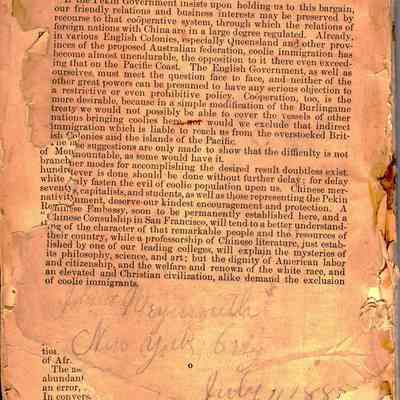 If the Pekin Government insists upon holding us to this bargain,
our friendly relations and business interests may be preserved by
recourse to that coöperative system, through which the relations of
foreign nations with China are in a large degree regulated. Already,
in various English Colonies, especially Queensland and other prov-
inces of the proposed Australian federation, coolie immigration has
become almost unendurable, the opposition to it there even exceed-
ing that on the Pacific Coast. The English Government, as well as
ourselves, must meet the question face to face, and neither of the
other great powers can be presumed to have any serious objection to
a restrictive or even prohibitive policy. Coöperation, too, is the
more desirable, because in a simple modification of the Burlingame
treaty we would not possibly be able to cover the vessels of other
nations bringing coolies here, nor would we exclude that indirect
immigration which is liable to reach us from the overstocked Brit-
ish Colonies and the islands of the Pacific.
se suggestions are only made to show that the difficulty is not
of Mou mountable, as some would have it.
branch her modes for accomplishing the desired result doubtless exist.
hundre ever is done should be done without further delay; for delay
white sly fasten the evil of coolie population upon us. Chinese mer-
seventy capitalists, and students, as well as those representing the Pekin
nativity ment, deserve our kindest encouragement and protection. A
Chinese Embassy, soon to be permanently established here, and a
Chinese Consulship in San Francisco, will tend to a better understand-
ing of the character of that remarkable people and the resources of
their country, while a professorship of Chinese literature, just estab-
lished by one of our leading colleges, will explain the mysteries of
its philosophy, science, and art; but the dignity of American labor
and citizenship, and the welfare and renown of the white race, and
an elevated and Christian civilization, alike demand the exclusion
of coolie immigrants.
Weymouth
New York City
tion
of Afr
The
abundant
an error,
In convers
July